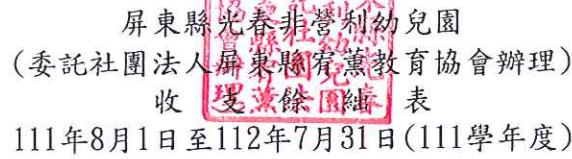 屏東縣光春非營利幼兒園
(委託社團法人屏東縣宥薰教育協會辦理)
收支餘絀表
111年8月1日至112年7月31日(111學年度)